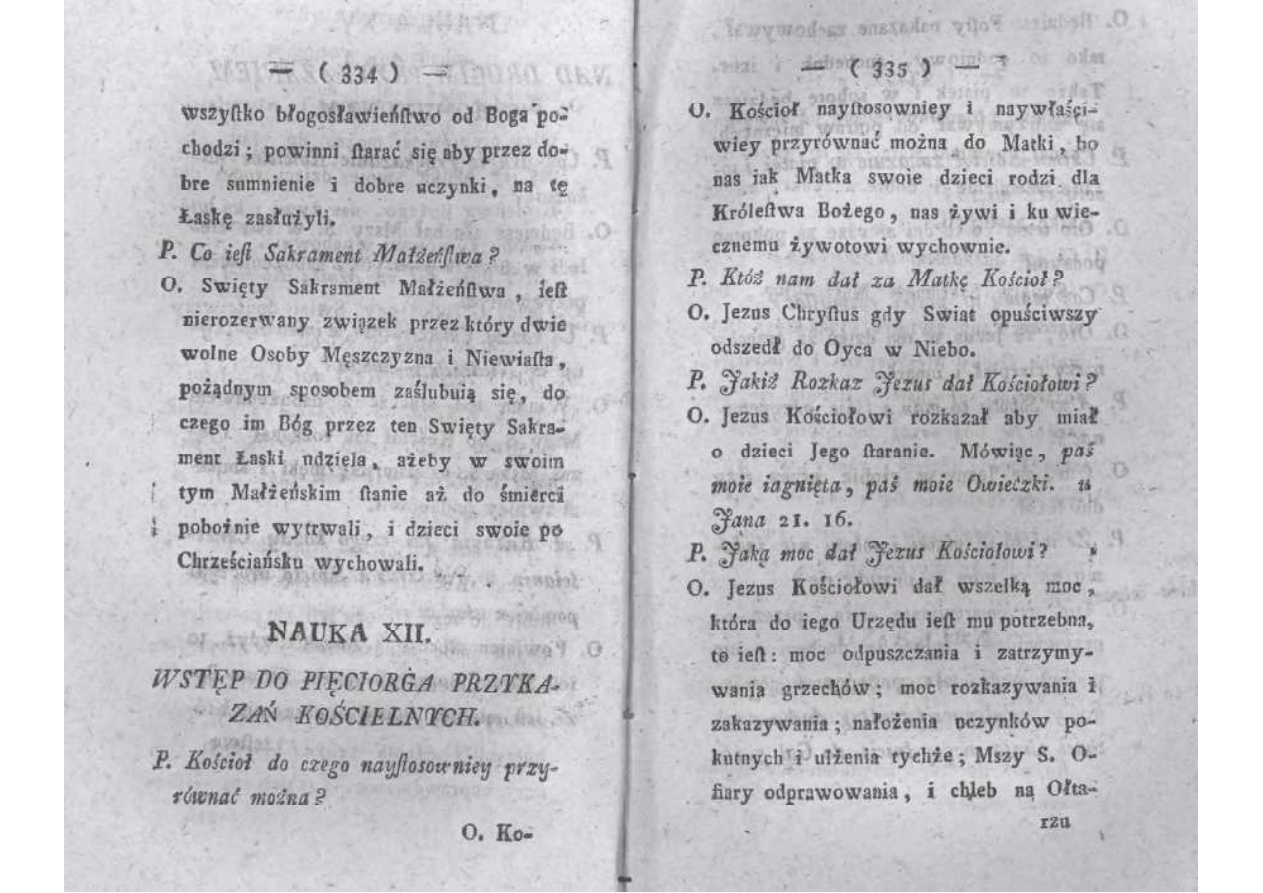 — ( 334 ) —
wszyſtko błogosławieńſtwo od Boga po-
chodzi ; powinni ſtarać się aby przez do-
bre sumnienie i dobre uczynki, na tę
Łaskę zasłużyli.
P. Co ieſt Sakrament Małżeńſtwa ?
O. Swięty Sakrament Małżeńſtwa , ieſt
nierozerwany związek przez który dwie
wolne Osoby Męszczyzna i Niewiaſta ,
pożądnym sposobem zaślubuią się, do
czego im Bóg przez ten Swięty Sakra-
ment Łaski udziela, ażeby w swoim
tym Małżeńskim ſtanie aż do śmierci
pobożnie wytrwali , i dzieci swoie po
Chrześciańsku wychowali.
NAUKA XII.
WSTĘP DO PIĘCIORGA PRZYKA-
ZAŃ KOŚCIELNYCH.
P. Kościoł do czego nayſtosowniey przy-
równać można ?
O. Ko-
— ( 335 ) —
O. Kościoł nayſtosowniey i naywłaści-
wiey przyrównać można do Matki , bo
nas iak Matka swoie dzieci rodzi dla
Króleſtwa Bożego , nas żywi i ku wie-
cznemu żywotowi wychownie.
P. Któż nam dał za Matkę Kościoł ?
O. Jezus Chryſtus gdy Swiat opuściwszy
odszedł do Oyca w Niebo.
P. Jakiż Rozkaz Jezus dał Kościołowi ?
O. Jezus Kościołowi rozkazał aby miał
o dzieci Jego ſtaranie. Mówiąc , paś
moie iagnięta , paś moie Owieczki. u
Jana 21. 16.
P. Jaką moc dał Jezus Kościołowi ?
O. Jezus Kościołowi dał wszelką moc ,
która do iego Urzędu ieſt mu potrzebna,
to ieſt : moc odpuszczania i zatrzymy-
wania grzechów ; moc rozkazywania i
zakazywania ; nałożenia uczynków po-
kutnych i ulżenia tychże ; Mszy S. O-
fiary odprawowania , i chleb na Ołta-
rzu